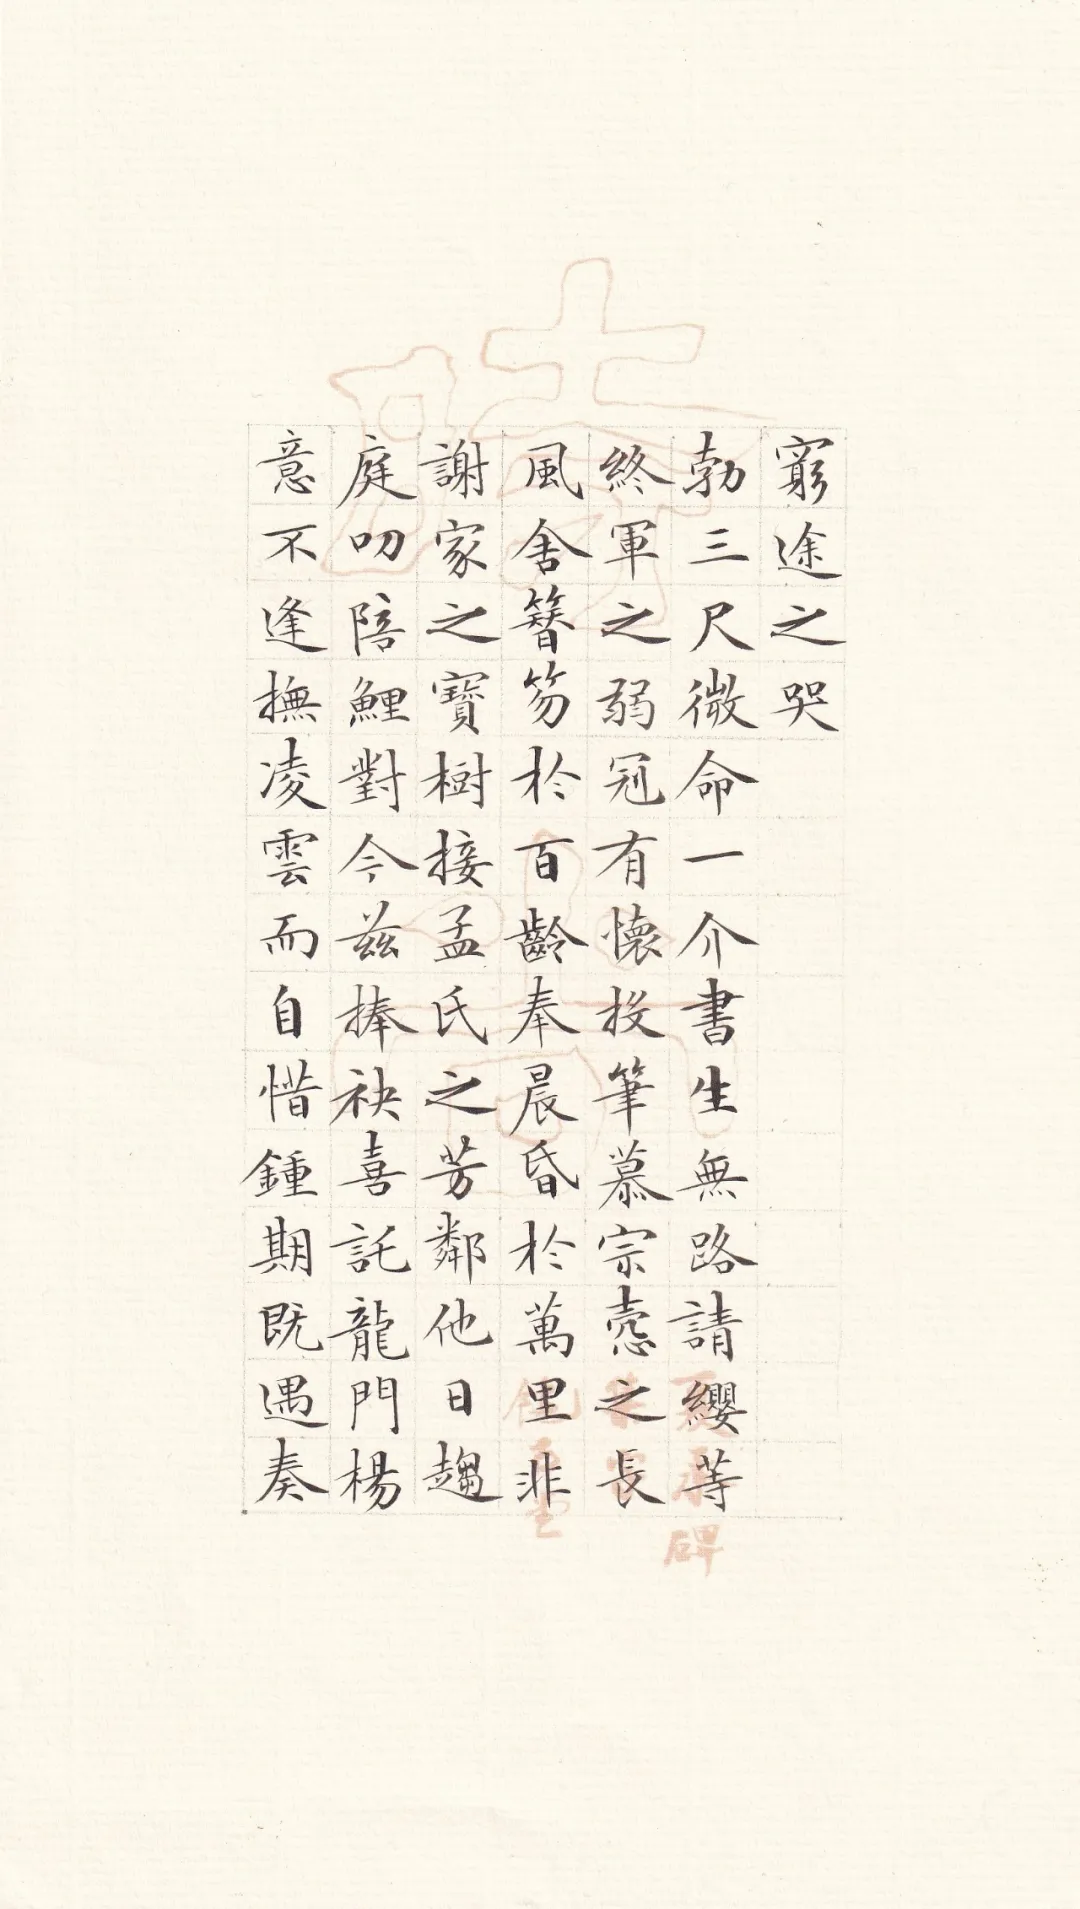 窮途之哭
勃三尺微命一介書生無路請纓等
終軍之弱冠有懷投筆慕宗愨之長
風舍簪笏於百齡奉晨昏於萬里非
謝家之寶樹接孟氏之芳鄰他日趨
庭叨陪鯉對今茲捧袂喜託龍門楊
意不逢撫凌雲而自惜鍾期既遇奏
碑